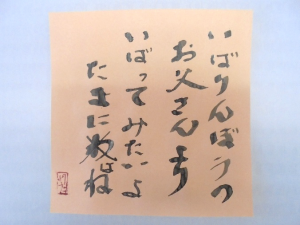 いばりんぼうの
お父さん
いばってみたいよ
たまに